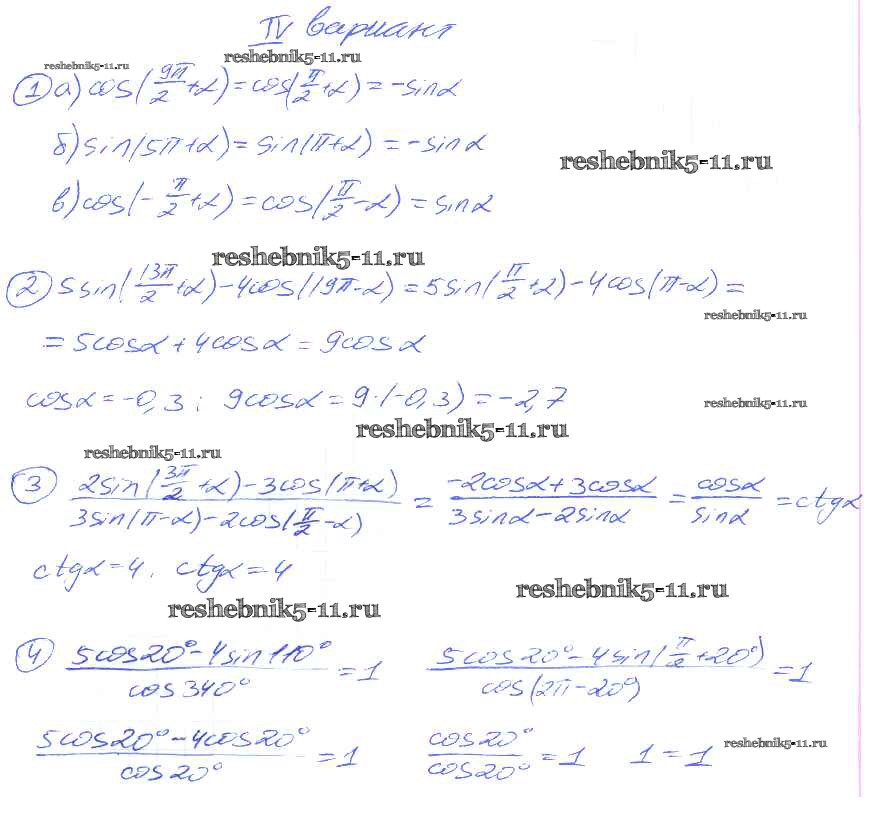 IV вариант
reshebnik5-11.ru reshebnik5-11.ru
① а) cos(9π/2+α)=cos(π/2+α)=-sinα
б) sin(5π+α)=sin(π+α)=-sinα
reshebnik5-11.ru
в) cos(-π/2+α)=cos(π/2-α)=sinα
reshebnik5-11.ru
② 5sin(13π/2+α)-4cos(19π-α)=5sin(π/2+α)-4cos(π-α)=
reshebnik5-11.ru
=5cosα+4cosα=9cosα
cosα=-0,3; 9cosα=9·(-0,3)=-2,7
reshebnik5-11.ru
reshebnik5-11.ru
reshebnik5-11.ru
③ (2sin(3π/2+α)-3cos(π+α))/(3sin(π-α)-2cos(π/2-α)) = (-2cosα+3cosα)/(3sinα-2sinα) = cosα/sinα = ctgα
ctgα=4. ctgα=4
reshebnik5-11.ru
reshebnik5-11.ru
④ (5cos20°-4sin110°)/cos340° =1 (5cos20°-4sin(π/2+20°))/cos(2π-20°) =1
(5cos20°-4cos20°)/cos20° =1 cos20°/cos20° =1 1=1 reshebnik5-11.ru